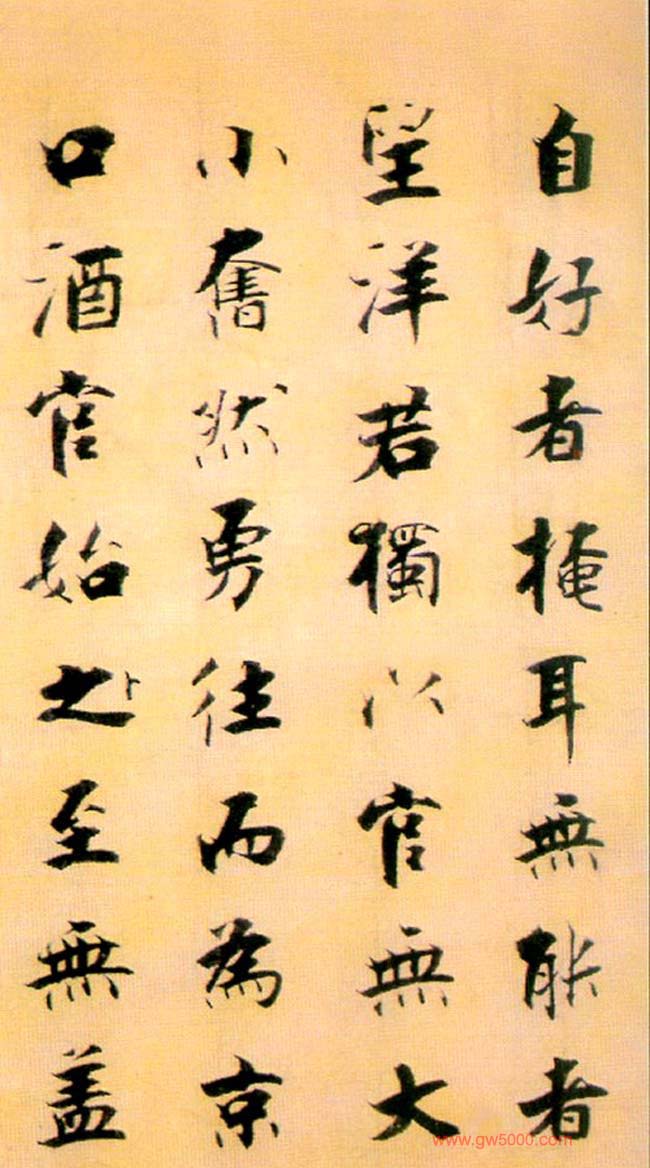 自好者掩耳無能者
望洋若獨以官無大
小奮然勇往而為京
口酒官始赴至無盖
www.gw5000.com